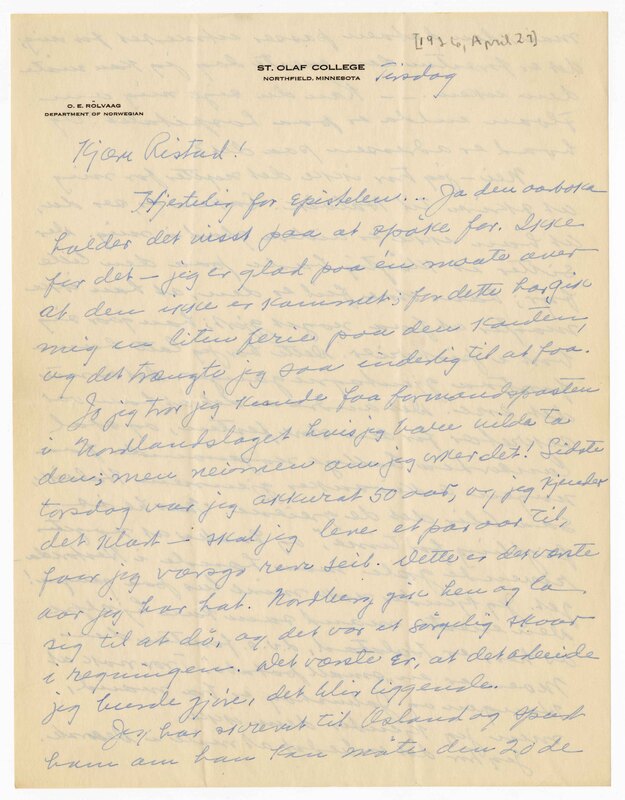 [1926, April 27]
ST. OLAF COLLEGE
NORTHFIELD, MINNESOTA
Tirsdag
O. E. RÖLVAAG
DEPARTMENT OF NORWEGIAN
Kjære Ristad!
Hjertelig for Epistelen... Ja den aarboka
holder det visst paa at spøke for. Ikke
for det – jeg er glad paa én maate over
at den ikke er kommet; for dette har git
mig en liten ferie paa den kanten,
og det trængte jeg saa inderlig til at faa.
Jo jeg tror jeg kunde faa formandsposten
i Nordlandslaget hvis jeg vare vilde ta
den; men neimen om jeg orker det! Sidste
torsdag var jeg akkurat 50 aar, og jeg kjender
det klart – skal jeg leve et par aar til,
faar jeg værsgo reve seil. Dette er det værste
aar jeg har hat. Nordberg gik hen og la
sig til at dö, og det var et sörgelig skaar
i regningen. Det værste er, at det arbeide
jeg burde gjöre, det blir liggende.
Jeg har skrevet til Osland og spurt
ham om han kan möte den 20de